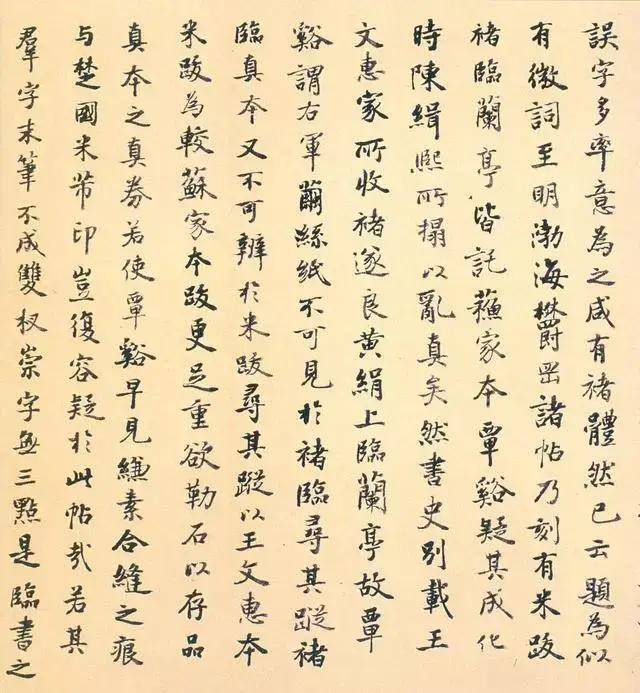 誤字多率意為之咸有褚體然已云題為似
有微詞至明渤海欝罡諸帖乃刻有米跋
褚臨蘭亭皆託蘓家本覃谿疑其成化
時陳緝熙所搨以亂真矣然書史別載王
文惠家所收褚遂良黄絹上臨蘭亭故覃
谿謂右軍繭絲紙不可見於褚臨尋其蹤褚
臨真本又不可辨於米跋尋其蹤以王文惠本
米跋為較蘇家本跋更足重欲勒石以存品
真本之真券若使覃谿早見縑素合縫之痕
与楚國米芾印豈復容疑於此帖哉若其
羣字末筆不成雙杈崇字無三點是臨書之